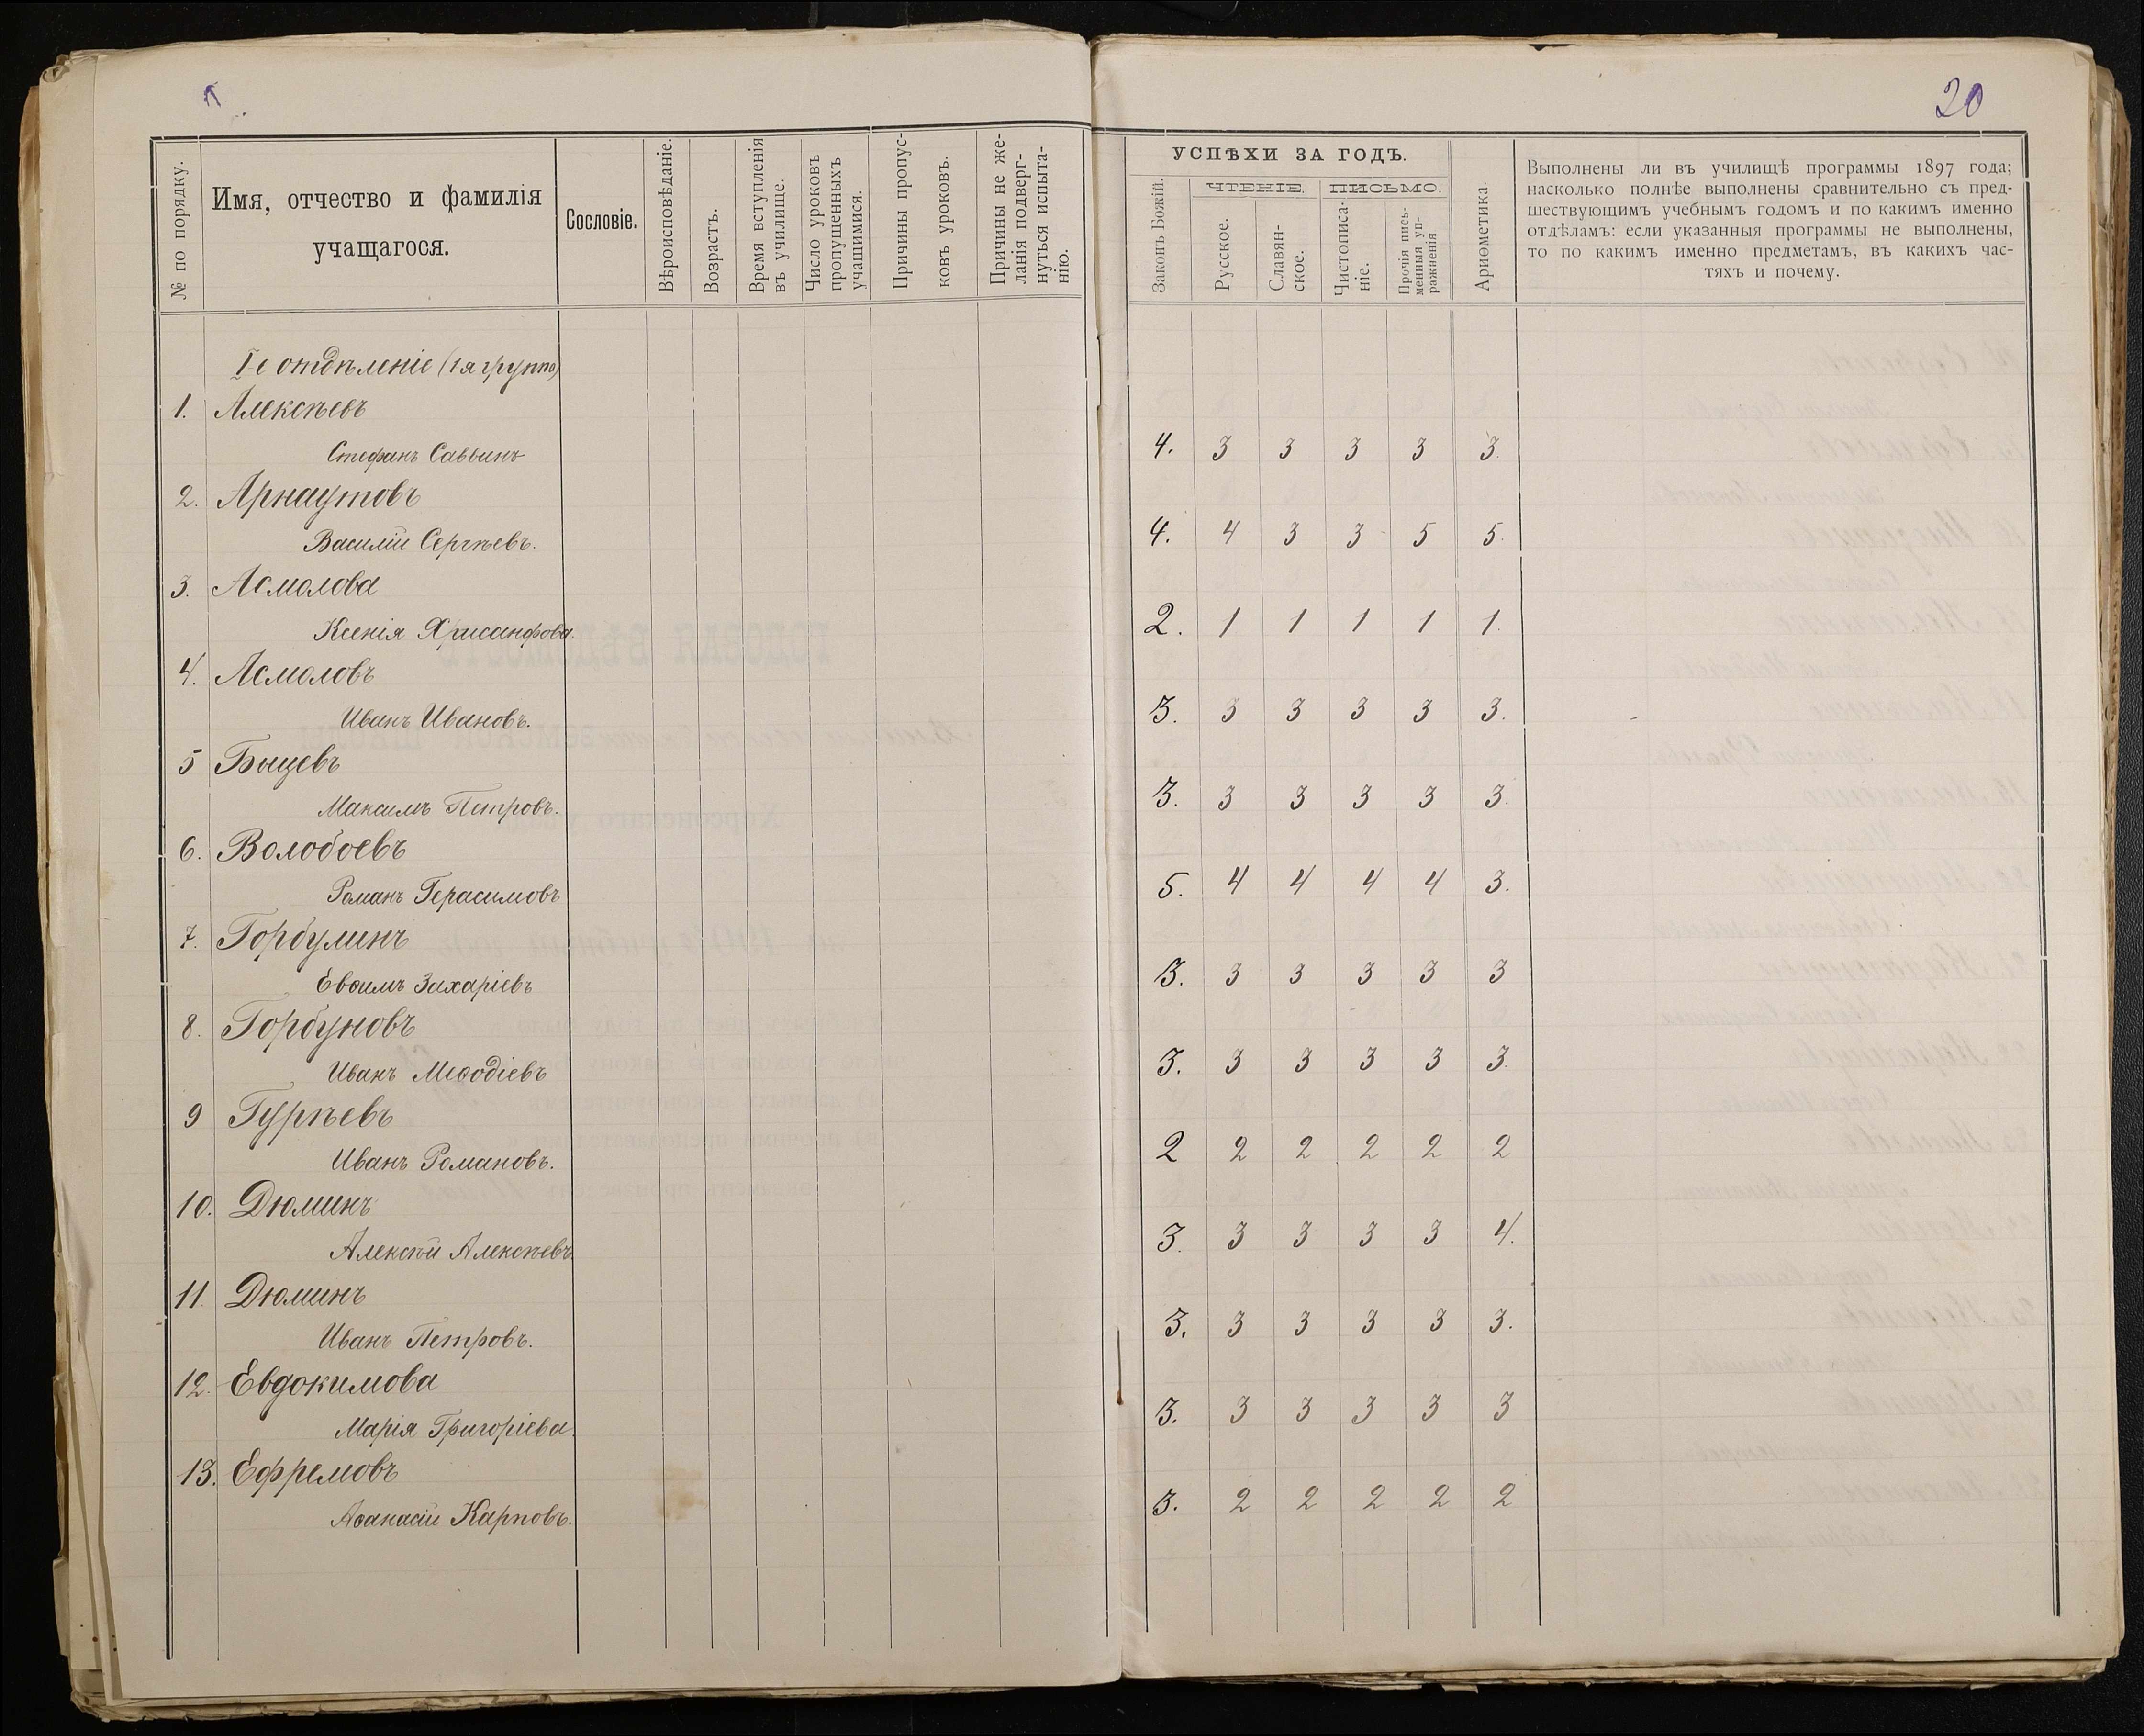 20
№ по порядку.
Имя, отчество и фамилія
учащагося.
Сословіе.
Вѣроисповѣданіе.
Возрастъ.
Время вступленія
въ училище.
Число уроковъ
пропущенныхъ
учащимися.
Причины пропус-
ковъ уроковъ.
Причины не же-
ланія подверг-
нуться испыта-
нію.
УСПѢХИ ЗА ГОДЪ.
Законъ Божій.
ЧТЕНІЕ.
Русское.
Славян-
ское.
ПИСЬМО.
Чистописа-
ніе.
Прочія пись-
менныя уп-
ражненія
Ариѳметика.
Выполнены ли въ училищѣ программы 1897 года;
насколько полнѣе выполнены сравнительно съ пред-
шествующимъ учебнымъ годомъ и по какимъ именно
отдѣламъ: если указанныя программы не выполнены,
то по какимъ именно предметамъ, въ какихъ час-
тяхъ и почему.
Iе отдѣленіе (1я группа)
1. Алексѣевъ
Стефанъ Саввинъ 4. 3 3 3 3 3.
2. Арнаутовъ
Василій Сергѣевъ. 4. 4 3 3 5 5.
3. Асмолова
Ксенія Хрисанфова 2. 1 1 1 1 1.
4. Асмоловъ
Иванъ Ивановъ. 3. 3 3 3 3 3.
5 Быцевъ
Максимъ Петровъ. 3. 3 3 3 3 3.
6. Волобоевъ
Романъ Герасимовъ 5. 4 4 4 4 3.
7. Горбулинъ
Евѳимъ Захаріевъ 3. 3 3 3 3 3
8. Горбуновъ
Иванъ Меѳодіевъ 3. 3 3 3 3 3.
9 Гурѣевъ
Иванъ Романовъ. 2 2 2 2 2 2
10. Дюминъ
Алексѣй Алексѣевъ 3. 3 3 3 3 4.
11. Дюминъ
Иванъ Петровъ. 3. 3 3 3 3 3.
12. Евдокимова
Марія Григоріева. 3. 3 3 3 3 3
13. Ефремовъ
Аѳанасій Карповъ. 3. 2 2 2 2 2